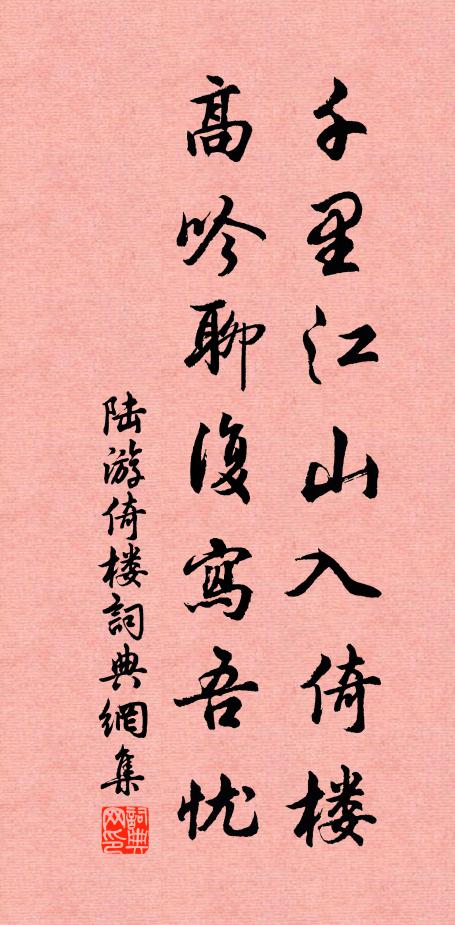 千里江山入倚楼
高吟聊復寫吾忧
陆游倚楼詞典網集
詞典网印